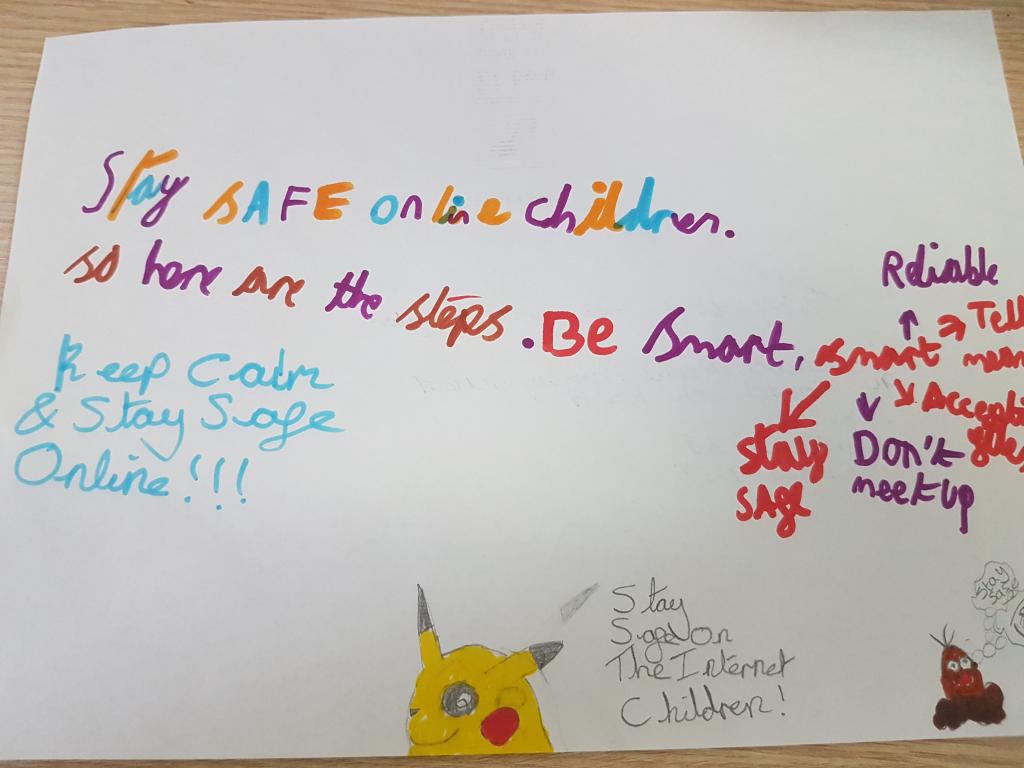 Stay sAFE online children.
so here are the steps. Be smart, smart
Reliable
Tell
Accept
Stay
sAge
Don't
meet up
Keep Calm
& Stay Sage
Online!!!
Stay
Sage On
The Internet
Children!
Stay
Sage